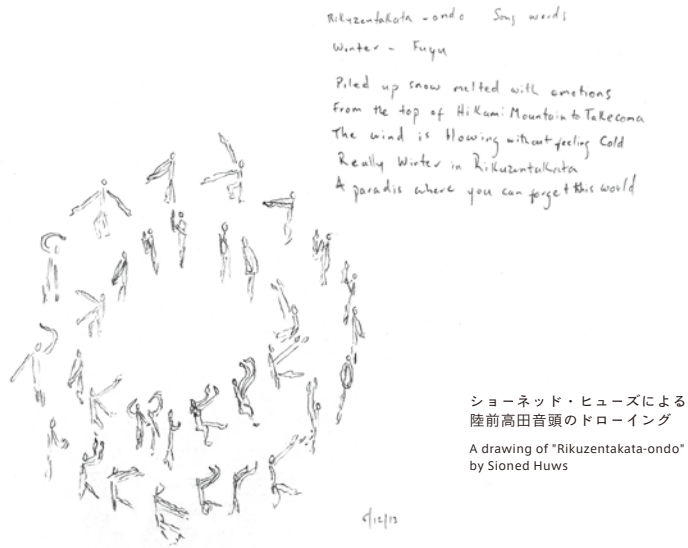 Rikuzentakata - ondo Song words
Winter - Fuyu
Piled up snow melted with emotions
From the top of Hikami Mountain to Takesoma
The wind is blowing without feeling Cold
Really Winter in Rikuzentakata
A paradis where you can forget this world
ショーネッド・ヒューズによる
陸前高田音頭のドローイング
A drawing of "Rikuzentakata-ondo"
by Sioned Huws
6/12/13